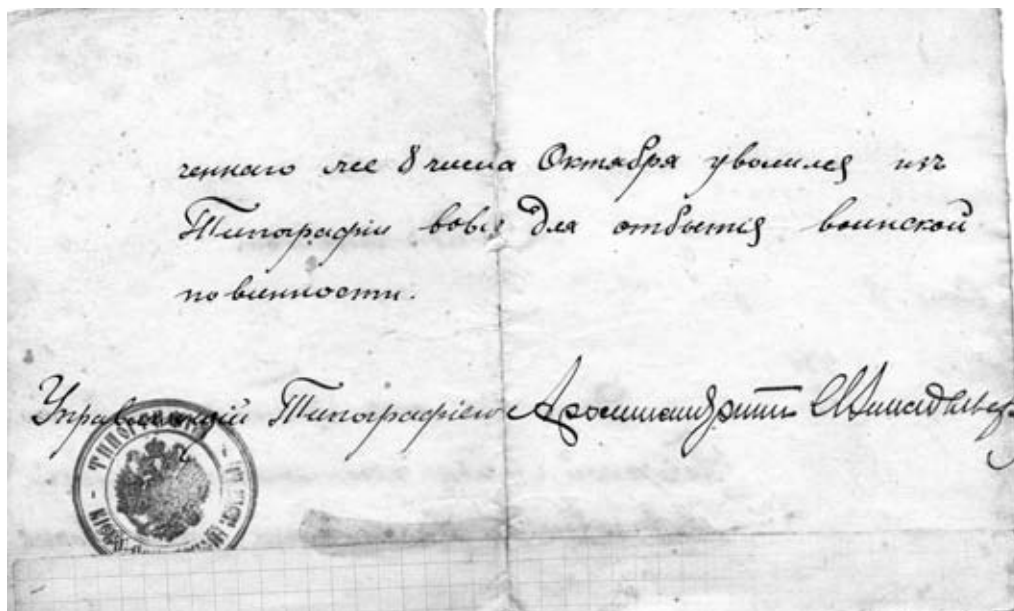 ченнаго же 8 числа Октября уволился изъ
Типографіи вовсе для отбытія воинской
повинности.
Управляющій Типографіею Архимандритъ
ТИПОГРАФІЯ
КІЕВО-ПЕЧЕРСКОЙ